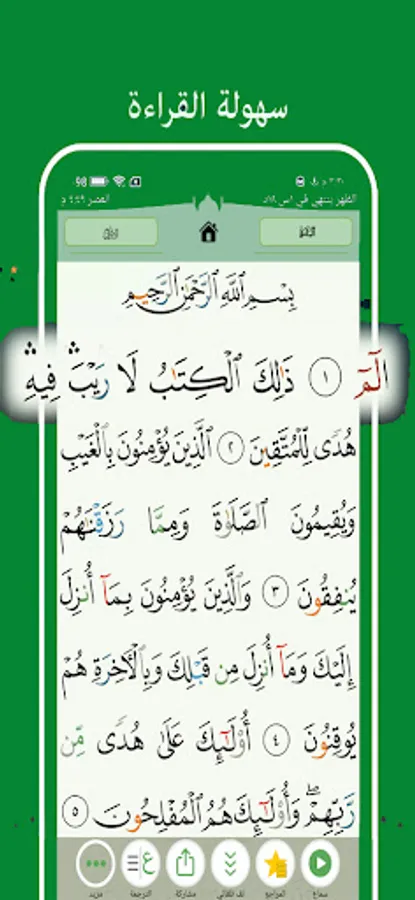 سهولة القراءة
98
الظهر ينتهي في
العصر
البقرة
بِسْمِ ٱللَّهِ ٱلرَّحْمَٰنِ ٱلرَّحِيمِ
الٓمٓ ١ ذَٰلِكَ ٱلْكِتَٰبُ لَا رَيْبَ ۛ فِيهِ ۛ
هُدًى لِّلْمُتَّقِينَ ٢ ٱلَّذِينَ يُؤْمِنُونَ بِٱلْغَيْبِ
وَيُقِيمُونَ ٱلصَّلَوٰةَ وَمِمَّا رَزَقْنَٰهُمْ
يُنفِقُونَ ٣ وَٱلَّذِينَ يُؤْمِنُونَ بِمَآ أُنزِلَ
إِلَيْكَ وَمَآ أُنزِلَ مِن قَبْلِكَ وَبِٱلْأٓخِرَةِ هُمْ
يُوقِنُونَ ٤ أُو۟لَٰٓئِكَ عَلَىٰ هُدًى مِّن
رَّبِّهِمْ ۖ وَأُو۟لَٰٓئِكَ هُمُ ٱلْمُفْلِحُونَ ٥
سماع
المراجع
لف تلقائي
مشاركة
الترجمة
مزيد